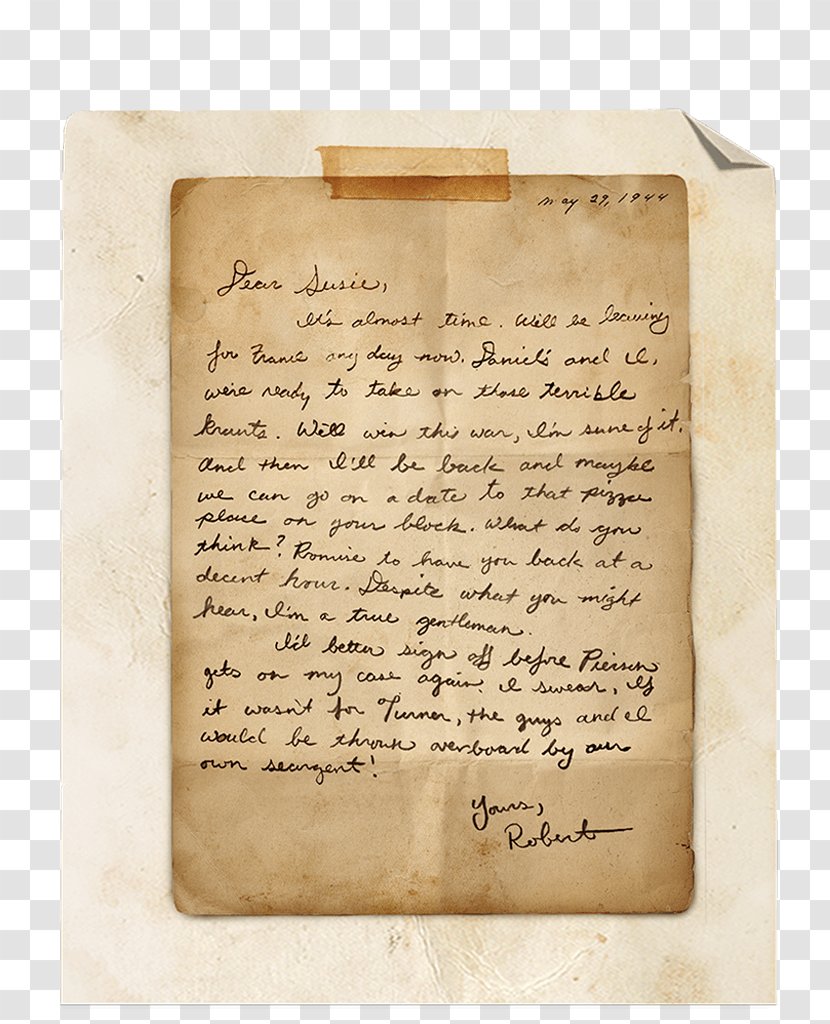 May 29, 1944
Dear Susie,
It's almost time. Will be leaving
for France any day now. Daniels and I,
we're ready to take on those terrible
krauts. We'll win this war, I'm sure of it.
And then I'll be back and maybe
we can go on a date to that pizza
place on your block. What do you
think? Promise to have you back at a
decent hour. Despite what you might
hear, I'm a true gentleman.
I'd better sign off before Pierson
gets on my case again. I swear, if
it wasn't for Turner, the guys and I
would be thrown overboard by our
own seargent!
Yours,
Robert